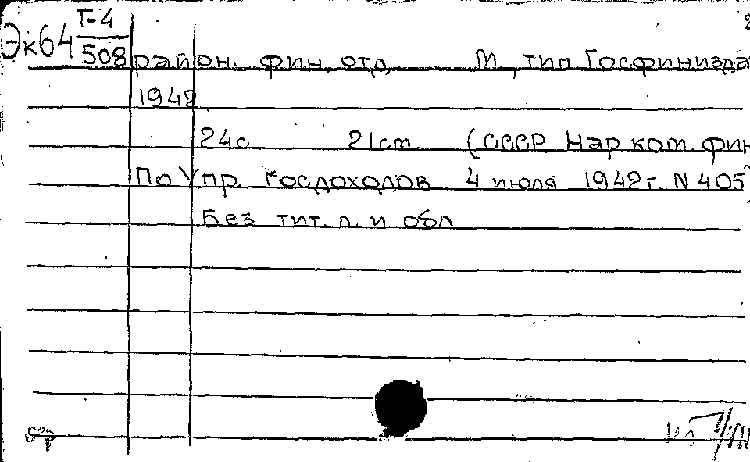 Эк64 Т-4/508
район. фин. отд. М., тип. Госфинизда
1942.
24с. 21см. (СССР Нар. ком. фин
По Упр. госдоходов 4 июля 1942г. N 405
Без тит. л. и обл.